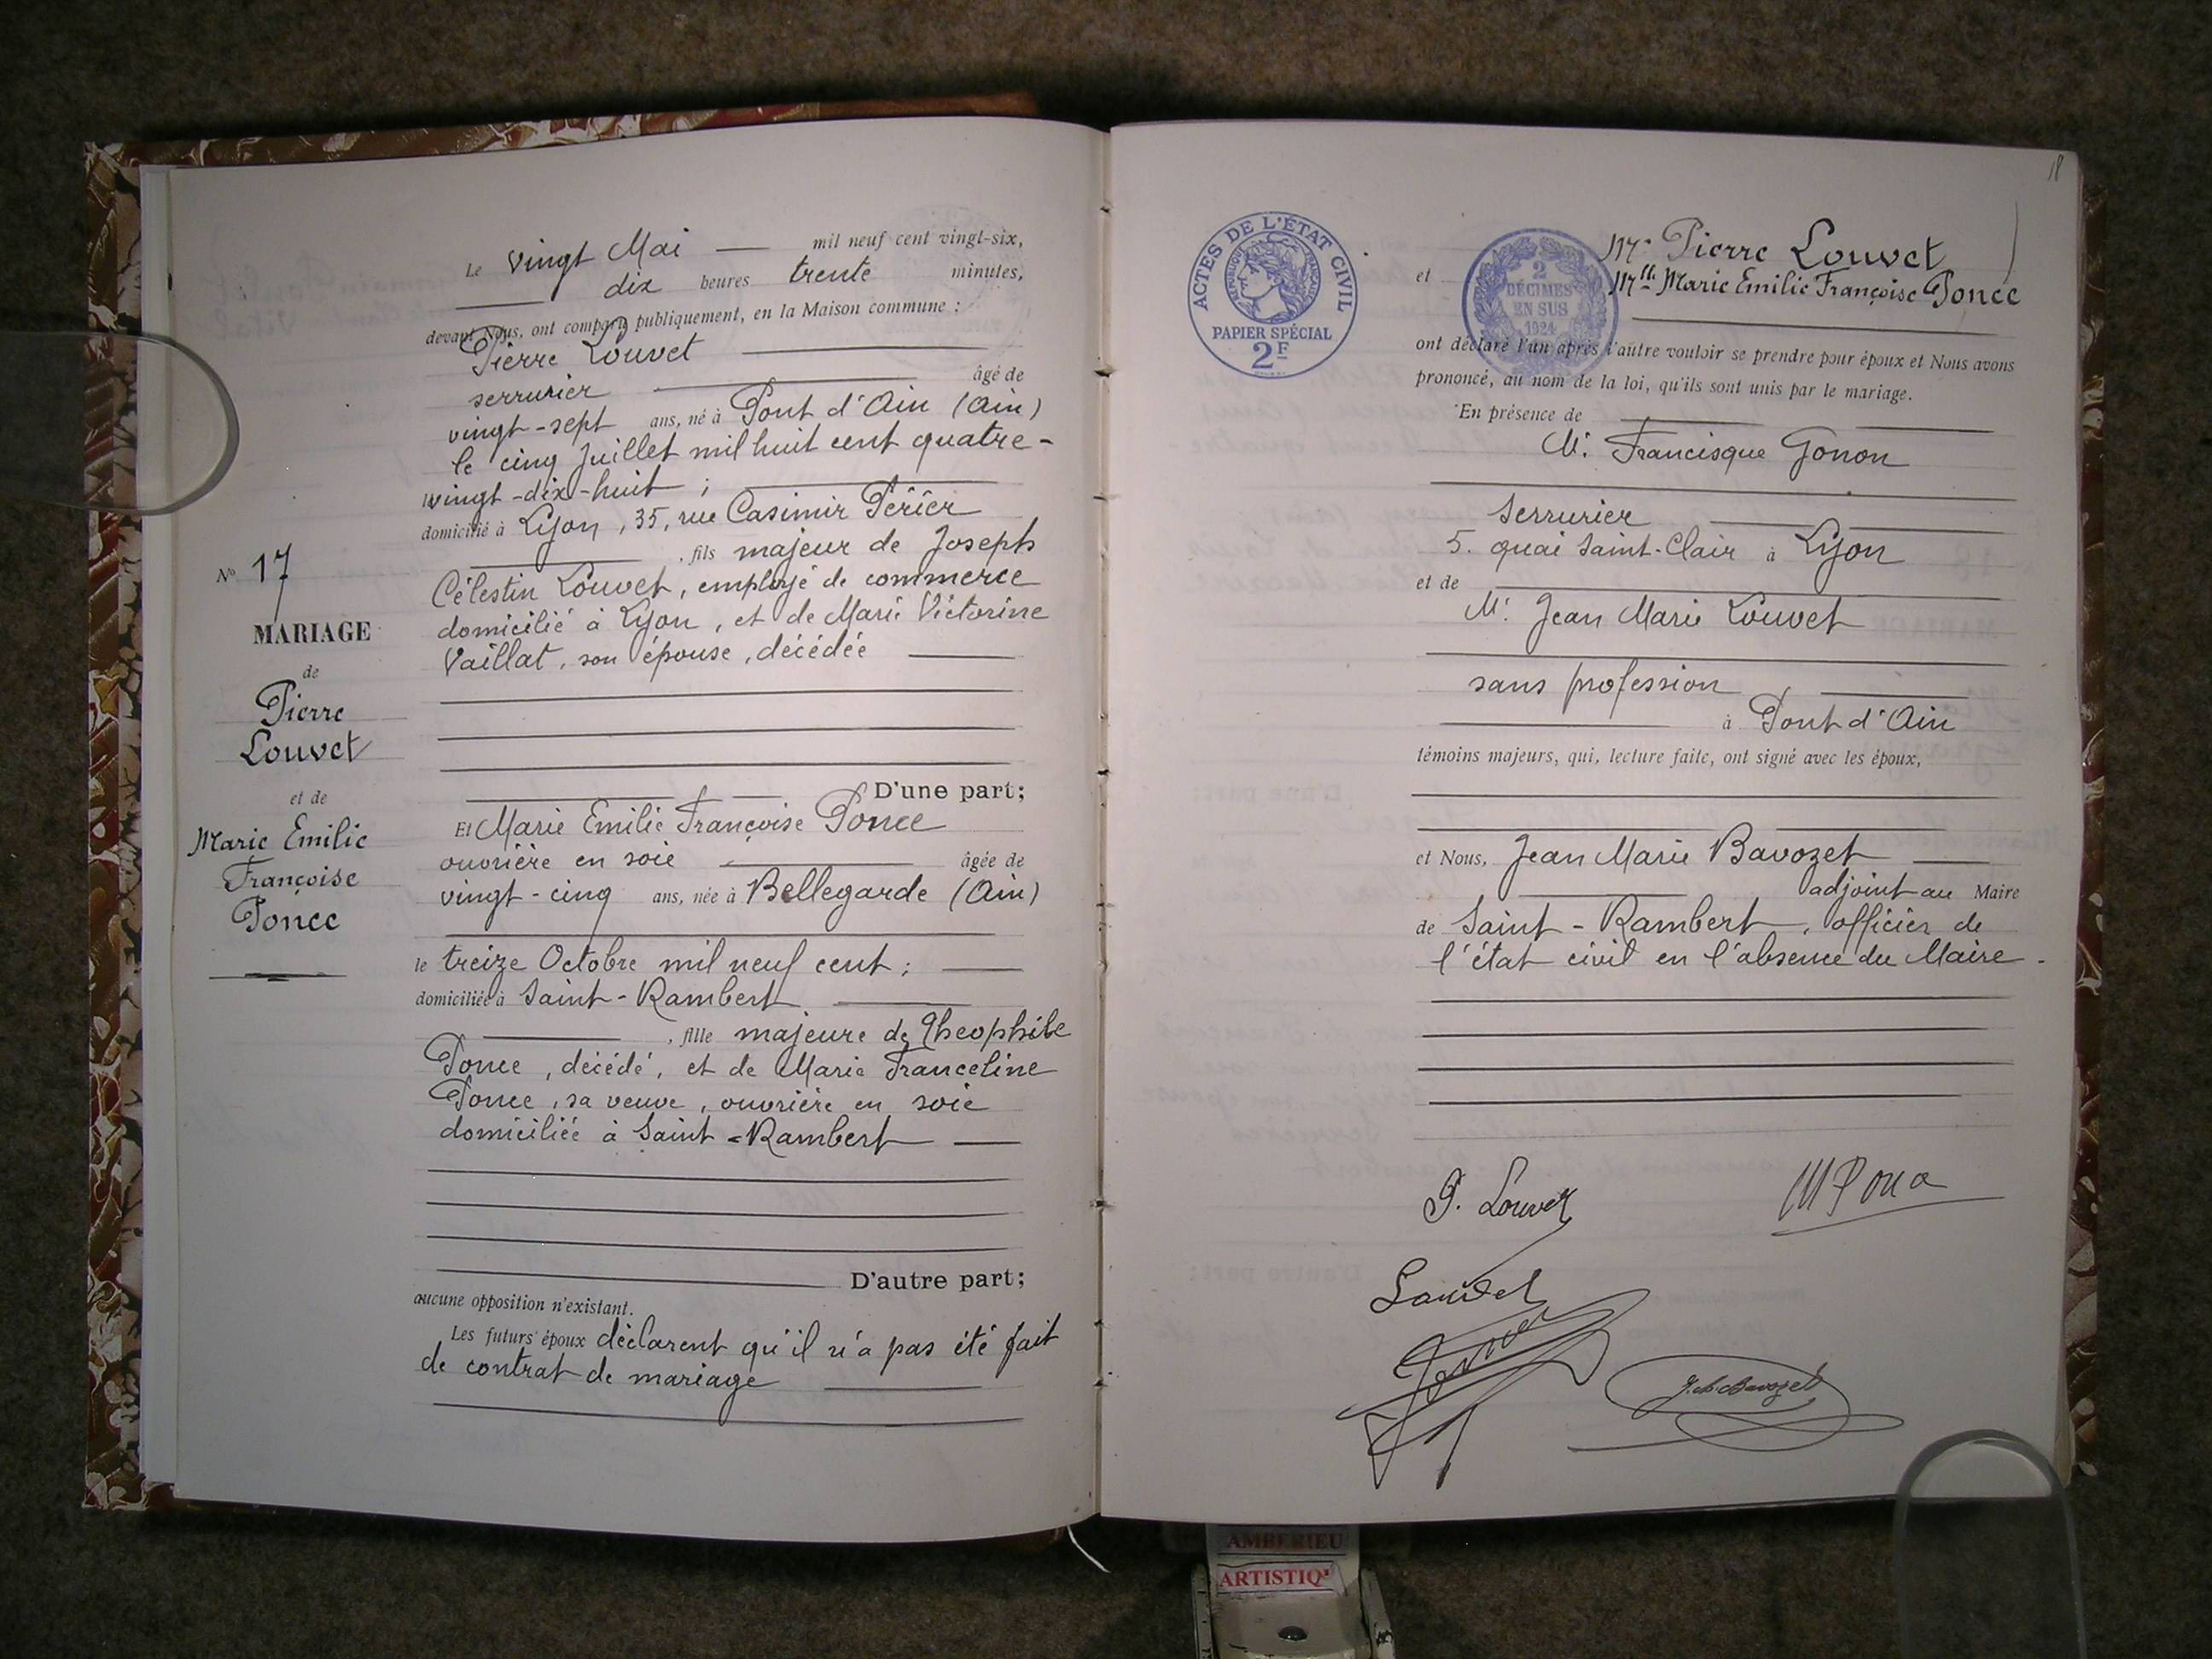 Le vingt Mai — mil neuf cent vingt-six,
dix heures trente minutes,
devant Nous, ont comparu publiquement, en la Maison commune :
Pierre Louvet
serrurier âgé de
vingt-sept ans, né à Pont d'Ain (Ain)
le cinq Juillet mil huit cent quatre-
vingt-dix-huit ;
domicilié à Lyon, 35, rue Casimir Périer
, fils majeur de Joseph
Célestin Louvet, employé de commerce
domicilié à Lyon, et de Marie Victorine
Vaillat, son épouse, décédée
N° 17
MARIAGE
de
Pierre
Louvet
et de
Marie Emilie
Françoise
Ponce
D'une part;
Et Marie Emilie Françoise Ponce
ouvrière en soie âgée de
vingt-cinq ans, née à Bellegarde (Ain)
le treize Octobre mil neuf cent ;
domiciliée à Saint-Rambert
, fille majeure de Théophile
Ponce, décédé, et de Marie Franceline
Ponce, sa veuve, ouvrière en soie
domiciliée à Saint-Rambert
D'autre part;
aucune opposition n'existant.
Les futurs époux déclarent qu'il n'a pas été fait
de contrat de mariage
18
ACTES DE L'ÉTAT CIVIL
RÉPUBLIQUE FRANÇAISE
PAPIER SPÉCIAL
2F
2
DÉCIMES
EN SUS
1924
Mr Pierre Louvet
et Mlle Marie Emilie Françoise Ponce
ont déclaré l'un après l'autre vouloir se prendre pour époux et Nous avons
prononcé, au nom de la loi, qu'ils sont unis par le mariage.
En présence de
M. Francisque Gonon
serrurier
5. quai Saint-Clair à Lyon
et de
M. Jean Marie Louvet
sans profession
à Pont d'Ain
témoins majeurs, qui, lecture faite, ont signé avec les époux,
et Nous, Jean Marie Bavozet
adjoint au Maire
de Saint-Rambert, officier de
l'état civil en l'absence du Maire.
P. Louvet
M Ponce
Louvet
Gonon
J. M. Bavozet
AMBERIEU
ARTISTIQ